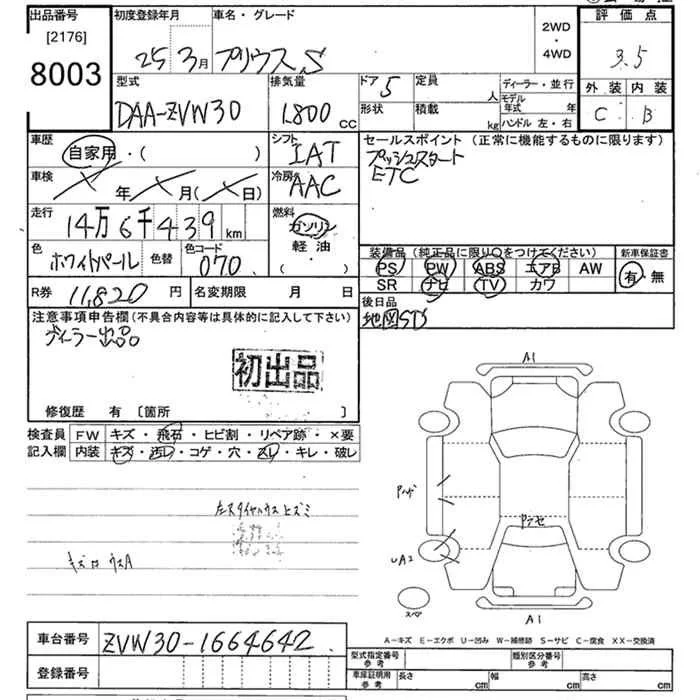 出品番号 初度登録年月 車名・グレード 2WD・4WD 評価点
[2176] 25年3月 プリウス S 3.5
8003
型式 排気量 ドア 5 定員 人 ディーラー・並行 外装 内装
DAA-ZVW30 1,800 CC 形状 積載 kg モデル年式 年 C B
ハンドル 左・右
車歴 自家用・( ) シフト IAT セールスポイント (正常に機能するものに限ります)
車検 年 月 ( 日) 冷房 AAC プッシュスタート
ETC
走行 14万6千439km 燃料 ガソリン
軽油・( )
色 ホワイトパール 色替 色コード 070 装備品 (純正品に限り○をつけてください) 新車保証書
PS PW ABS エアB AW 有・無
R券 11,820円 名変期限 月 日 SR ナビ TV カワ
後日品
注意事項申告欄 (不具合内容等は具体的に記入して下さい) 地図SD
ディーラー出品
初出品
修復歴 有 [箇所 ]
検査員 FW キズ・飛石・ヒビ割・リペア跡・×要
記入欄 内装 キズ・汚れ・コゲ・穴・スレ・キレ・破レ
A1
Pハゲ
左スタイヤハウスヒズミ
Pアセ
UA2
スペア
A1
A-キズ E-エクボ U-凹み W-補修跡 S-サビ C-腐食 XX-交換済
車台番号 ZVW30-1664642
登録番号
型式指定番号 参考 類別区分番号 参考
車庫証明用 参考 長さ cm 幅 cm 高さ cm